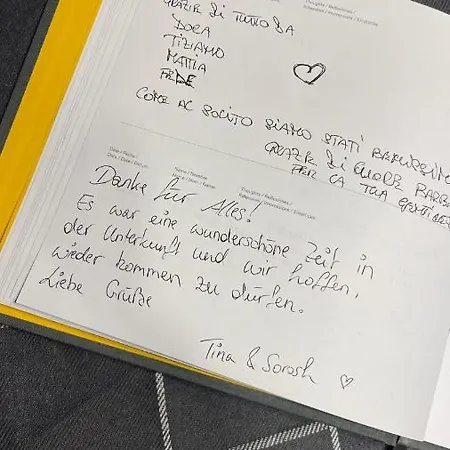 GRAZIE DI TUTTO DA
DORA
TIZIANO
MATTIA
FEDE
COME AL SOLITO SIAMO STATI
GRAZIE DI CUORE BARBA
PER LA TUA
Thoughts / Reflections /
Date / Fecha /
Date / Data / Datum
Name / Nombre
Thoughts / Reflections /
Danke für Alles!
Es war eine wunderschöne Zeit in
der Unterkunft und wir hoffen,
wieder kommen zu dürfen.
Liebe Grüße
Tina & Sorosh